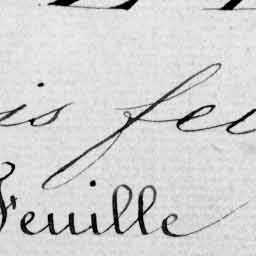 is feu
Feuille